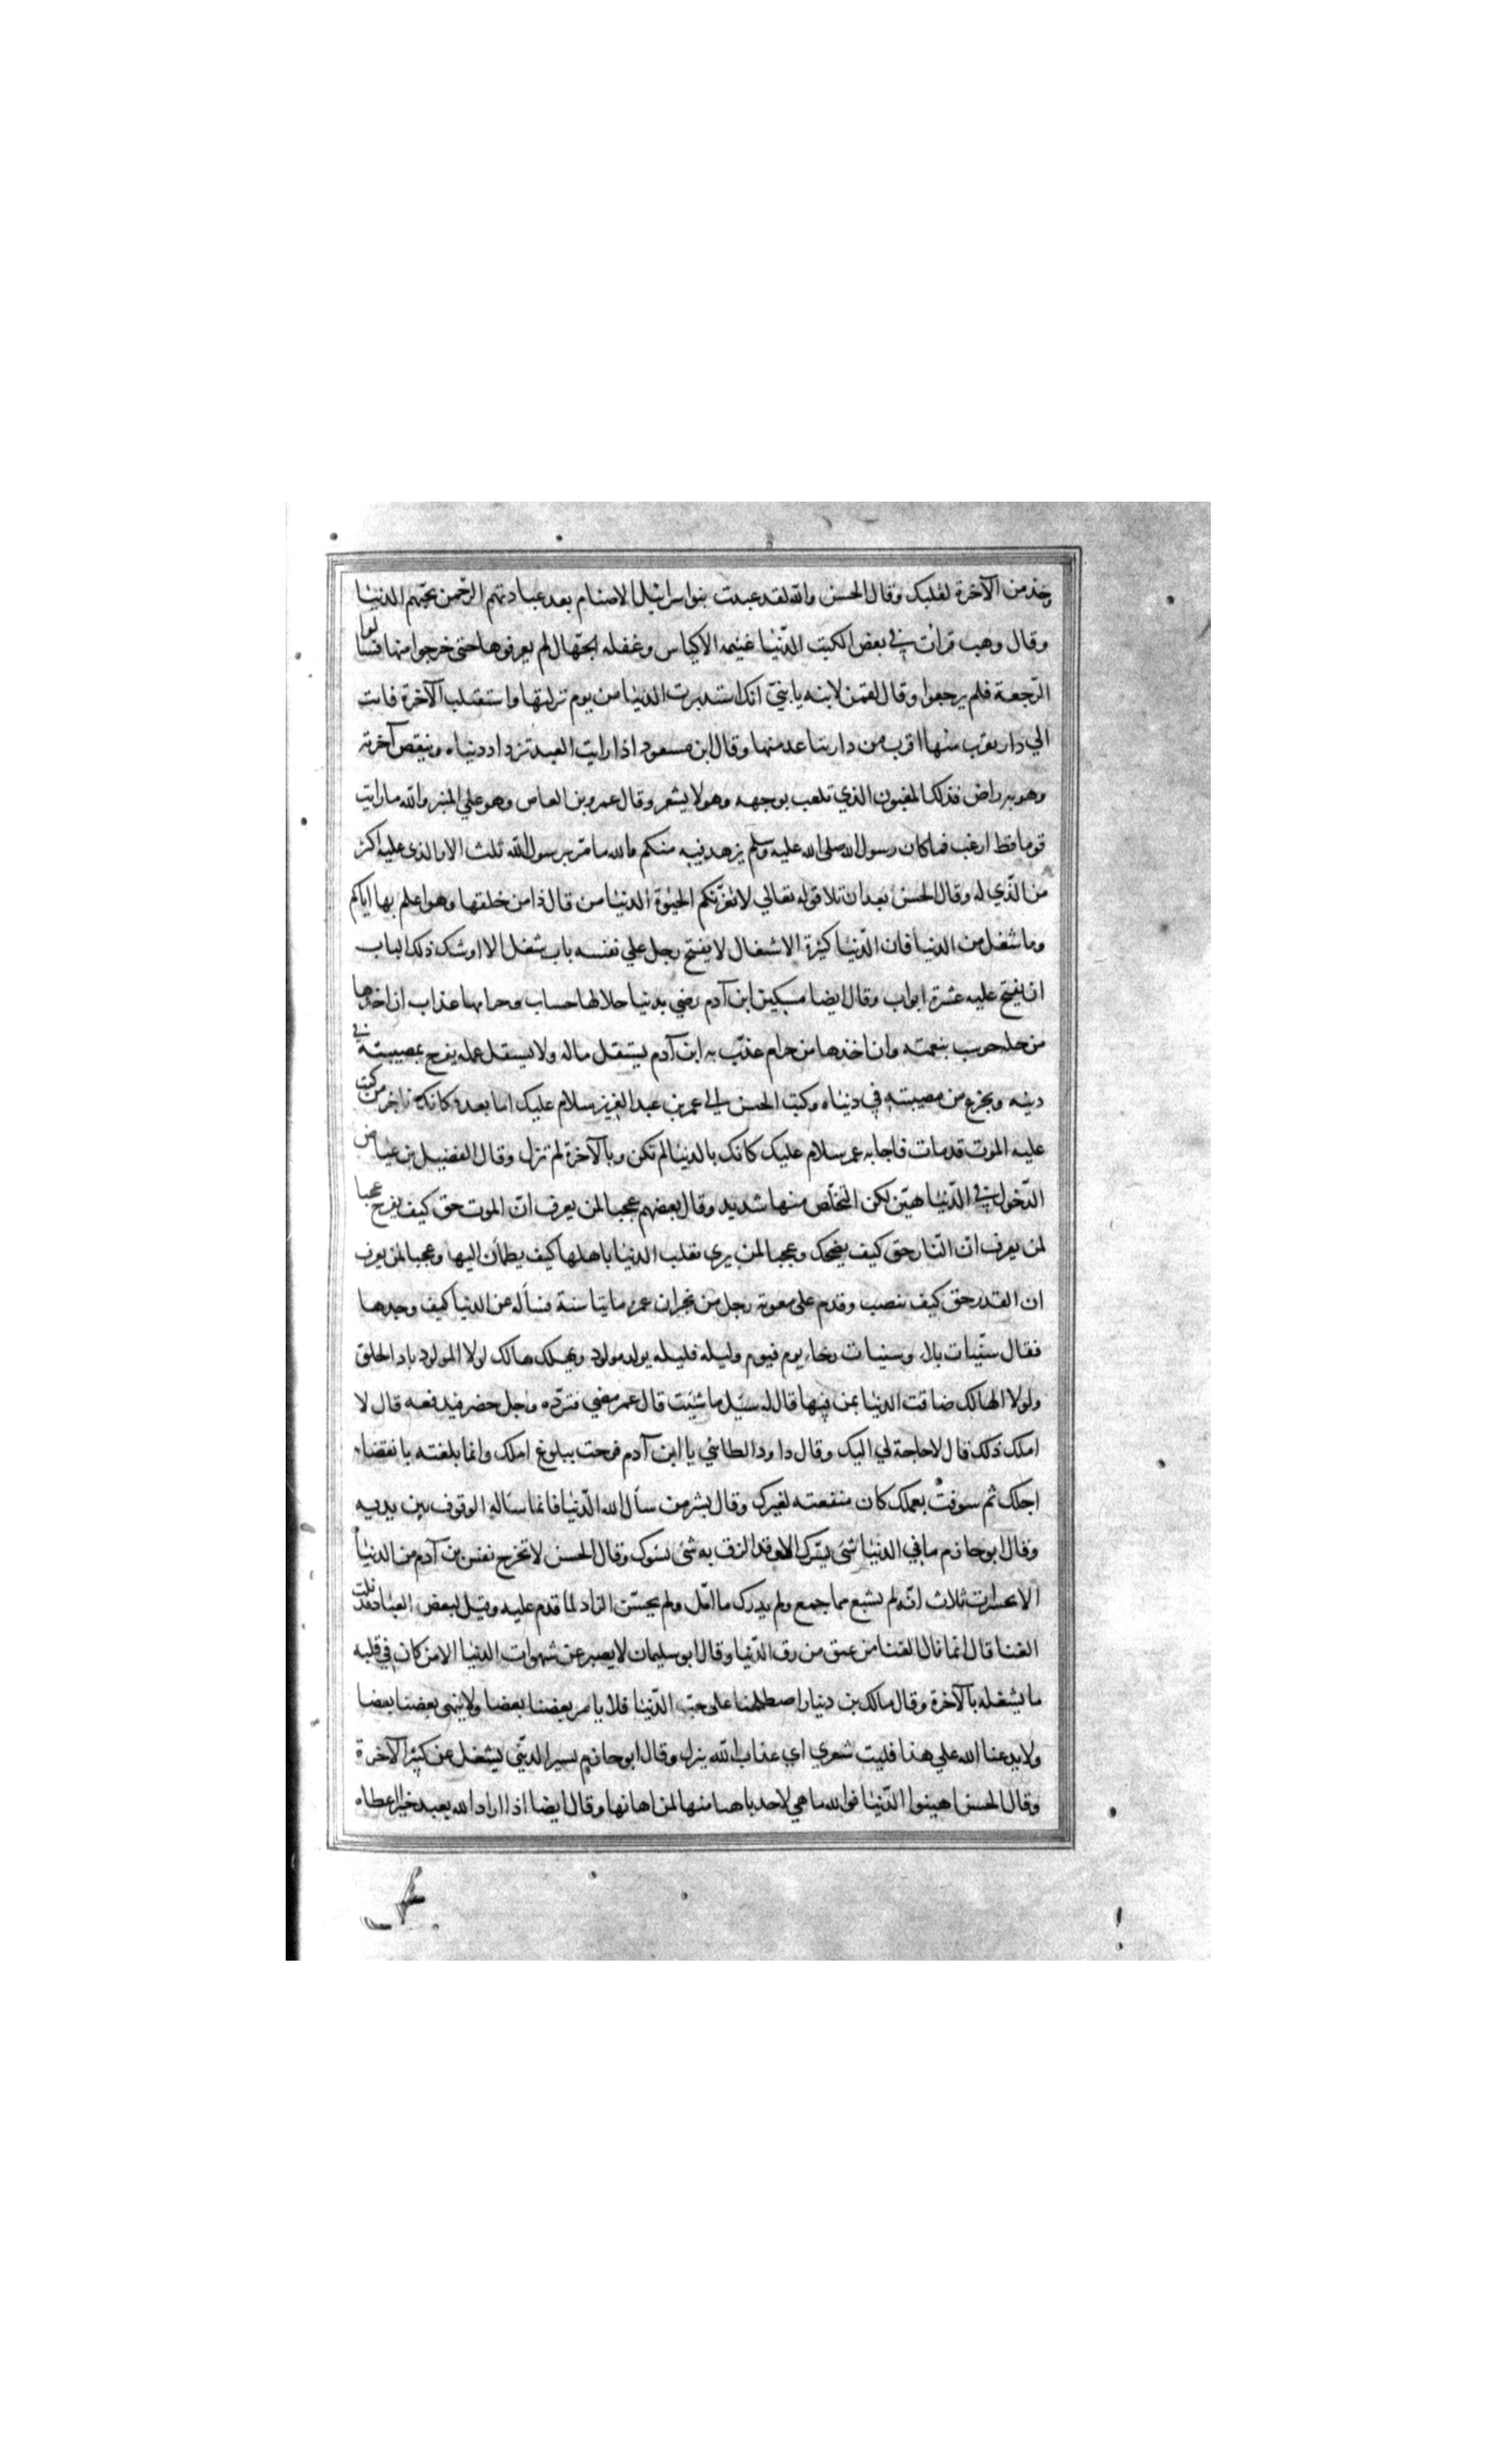 وخذ من الآخرة لقلبك وقال الحسن والله لقد عبدت بنوا سرائيل الاصنام بعد عبادتهم الرحمن بحبهم الدنيا
وقال وهب قرأت في بعض الكتب الدنيا غنيمه الاكياس وغفله الجهال لم يعرفوها حتى خرجوا منها فسألوا
الرجعة فلم يرجعوا وقال لقمن لابنه يا بني انك استدبرت الدنيا من يوم نزلتها واستقبلت الآخرة فانت
الي دار تقرب منها اقرب من دار تباعد منها وقال ابن مسعود اذا رايت العبد تزداد دنياه وينقص آخرته
وهو به راض فذلك المغبون الذي تلعب بوجهه وهو لا يشعر وقال عمرو بن العاص وهو علي المنبر والله ما رايت
قوما قط ارغب فيما كان رسول الله صلى الله عليه وسلم يزهد فيه منكم والله ما مر برسول الله ثلث الا والذي عليه اكثر
من الذي له وقال الحسن بعد ان تلا قوله تعالي لا تغرنكم الحيوة الدنيا من قال ذا من خلقها وهو اعلم بها اياكم
وما شغل من الدنيا فان الدنيا كثيرة الاشغال لا يفتح رجل علي نفسه باب شغل الا اوشك ذلك الباب
ان يفتح عليه عشرة ابواب وقال ايضا مسكين ابن آدم رضي بدنيا حلالها حساب وحرامها عذاب ان اخذها
من حله حوسب بنعمته وان اخذها من حرام عذب به ابن آدم يستقل ماله ولا يستقل عمله يفرح بمصيبته في
دينه ويجزع من مصيبته في دنياه وكتب الحسن الي عمر بن عبد العزيز سلام عليك اما بعد فكانك باخر من كتب
عليه الموت قد مات فاجابه عمر سلام عليك كانك بالدنيا لم تكن وبالآخرة لم تزل وقال الفضيل بن عياض
الدخول في الدنيا هين لكن التخلص منها شديد وقال بعضهم عجبا لمن يعرف ان الموت حق كيف يفرح عجبا
لمن يعرف ان النار حق كيف يضحك وعجبا لمن يري تقلب الدنيا باهلها كيف يطمأن اليها وعجبا لمن يعرف
ان القدر حق كيف ينصب وقدم على معوية رجل من نجران عمره مايتا سنة فسأله عن الدنيا كيف وجدها
فقال سنيات بلاء وسنيات رخاء يوم فيوم وليله فليله يولد مولود ويهلك هالك لولا المولود باد الخلق
ولولا الهالك ضاقت الدنيا بمن فيها قال له سل ما شئت قال عمر مضي فترده واجل حضر فيدفعه قال لا
املك ذلك قال لا حاجة لي اليك وقال داود الطائي يا ابن آدم فرحت ببلوغ املك وانما بلغته بانقضاء
اجلك ثم سوفت بعملك كان منفعته لغيرك وقال بشر من سأل الله الدنيا فانما سئاله الوقوف بين يديه
وقال ابو حازم ما في الدنيا شئ يسرك الا وقد الزق به شئ يسوك وقال الحسن لا تخرج نفس بن آدم من الدنيا
الا بحسرات ثلاث انه لم يشبع مما جمع ولم يدرك ما امل ولم يحسن الزاد لما قدم عليه وقيل لبعض العباد قد نلت
الغنا قال انما نال الغنا من عتق من رق الدنيا وقال ابو سليمان لا يصبر عن شهوات الدنيا الا من كان في قلبه
ما يشغله بالآخرة وقال مالك بن دينار اصطلحنا على حب الدنيا فلا يامر بعضنا بعضا ولا ينهى بعضنا بعضا
ولا يدعنا الله علي هذا فليت شعري اي عذاب الله ينزل وقال ابو حازم يسير الدني يشغل عن كثير الآخرة
وقال الحسن اهينوا الدنيا فوالله ما هي لاحد باهنا منها لمن اهانها وقال ايضا اذا اراد الله بعبد خيرا اعطاه